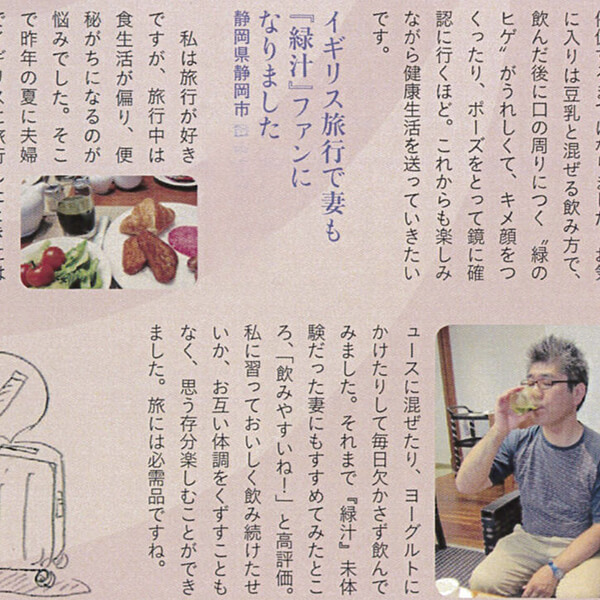 に入りは豆乳と混ぜる飲み方で、
飲んだ後に口の周りにつく〝緑の
ヒゲ〟がうれしくて、キメ顔をつ
くったり、ポーズをとって鏡に確
認に行くほど。これからも楽しみ
ながら健康生活を送っていきたい
です。
イギリス旅行で妻も
『緑汁』ファンに
なりました
静岡県静岡市
私は旅行が好き
ですが、旅行中は
食生活が偏り、便
秘がちになるのが
悩みでした。そこ
で昨年の夏に夫婦
ュースに混ぜたり、ヨーグルトに
かけたりして毎日欠かさず飲んで
みました。それまで『緑汁』未体
験だった妻にもすすめてみたとこ
ろ、「飲みやすいね！」と高評価。
私に習っておいしく飲み続けたせ
いか、お互い体調をくずすことも
なく、思う存分楽しむことができ
ました。旅には必需品ですね。